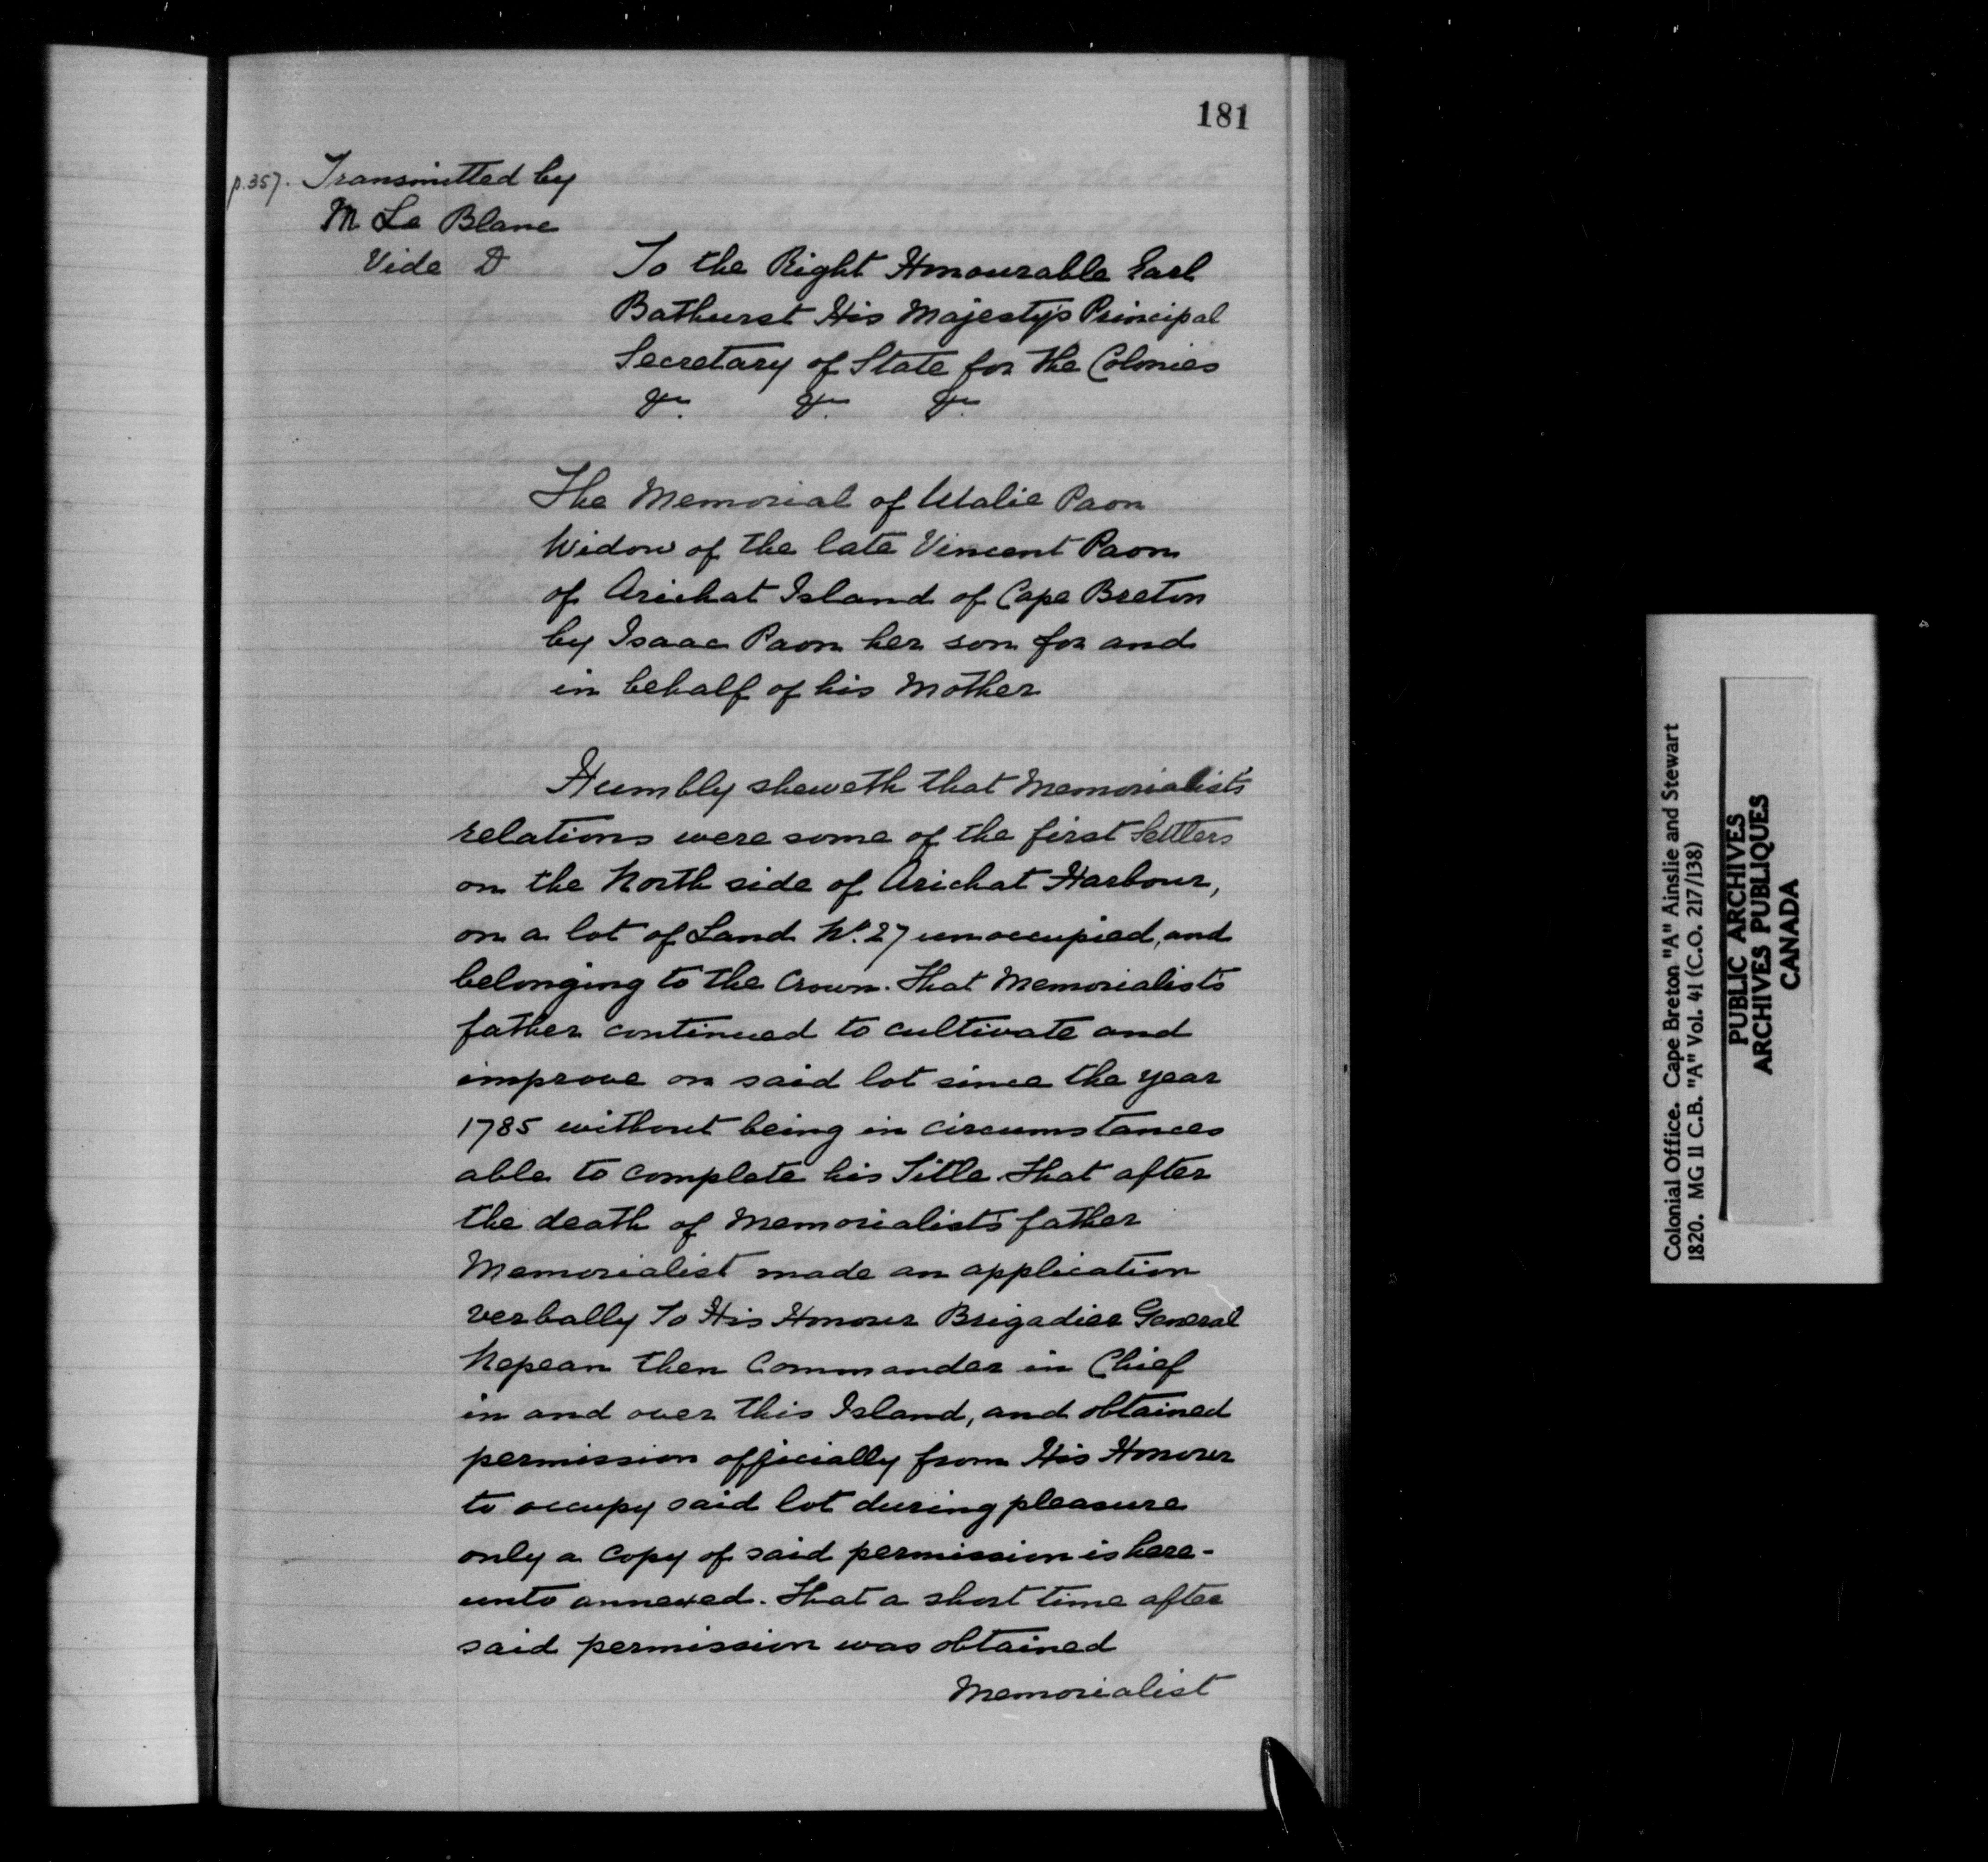 181
p.357. Transmitted by
M Le Blanc
Vide D
To the Right Honourable Earl
Bathurst His Majesty's Principal
Secretary of State for the Colonies
&c. &c. &c.
The Memorial of Utalie Paon
Widow of the late Vincent Paon
of Arichat Island of Cape Breton
by Isaac Paon her son for and
in behalf of his Mother
Humbly sheweth that Memorialist's
relations were some of the first Settlers
on the North side of Arichat Harbour,
on a lot of Land No. 27 unoccupied, and
belonging to the Crown. That Memorialist's
father continued to cultivate and
improve on said lot since the year
1785 without being in circumstances
able to complete his Title. That after
the death of Memorialist's father
Memorialist made an application
verbally To His Honour Brigadier General
Nepean then Commander in Chief
in and over this Island, and obtained
permission officially from His Honour
to occupy said lot during pleasure
only a Copy of said permission is here-
unto annexed. That a short time after
said permission was obtained
Memorialist
Colonial Office. Cape Breton "A" Ainslie and Stewart
1820. MG 11 C.B. "A" Vol. 41 (C.O. 217/138)
PUBLIC ARCHIVES
ARCHIVES PUBLIQUES
CANADA